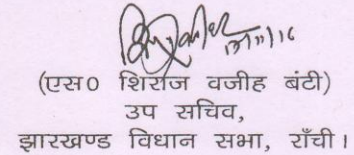 17/11/16
(एस० शिराज वजीह बंटी)
उप सचिव,
झारखण्ड विधान सभा, राँची।